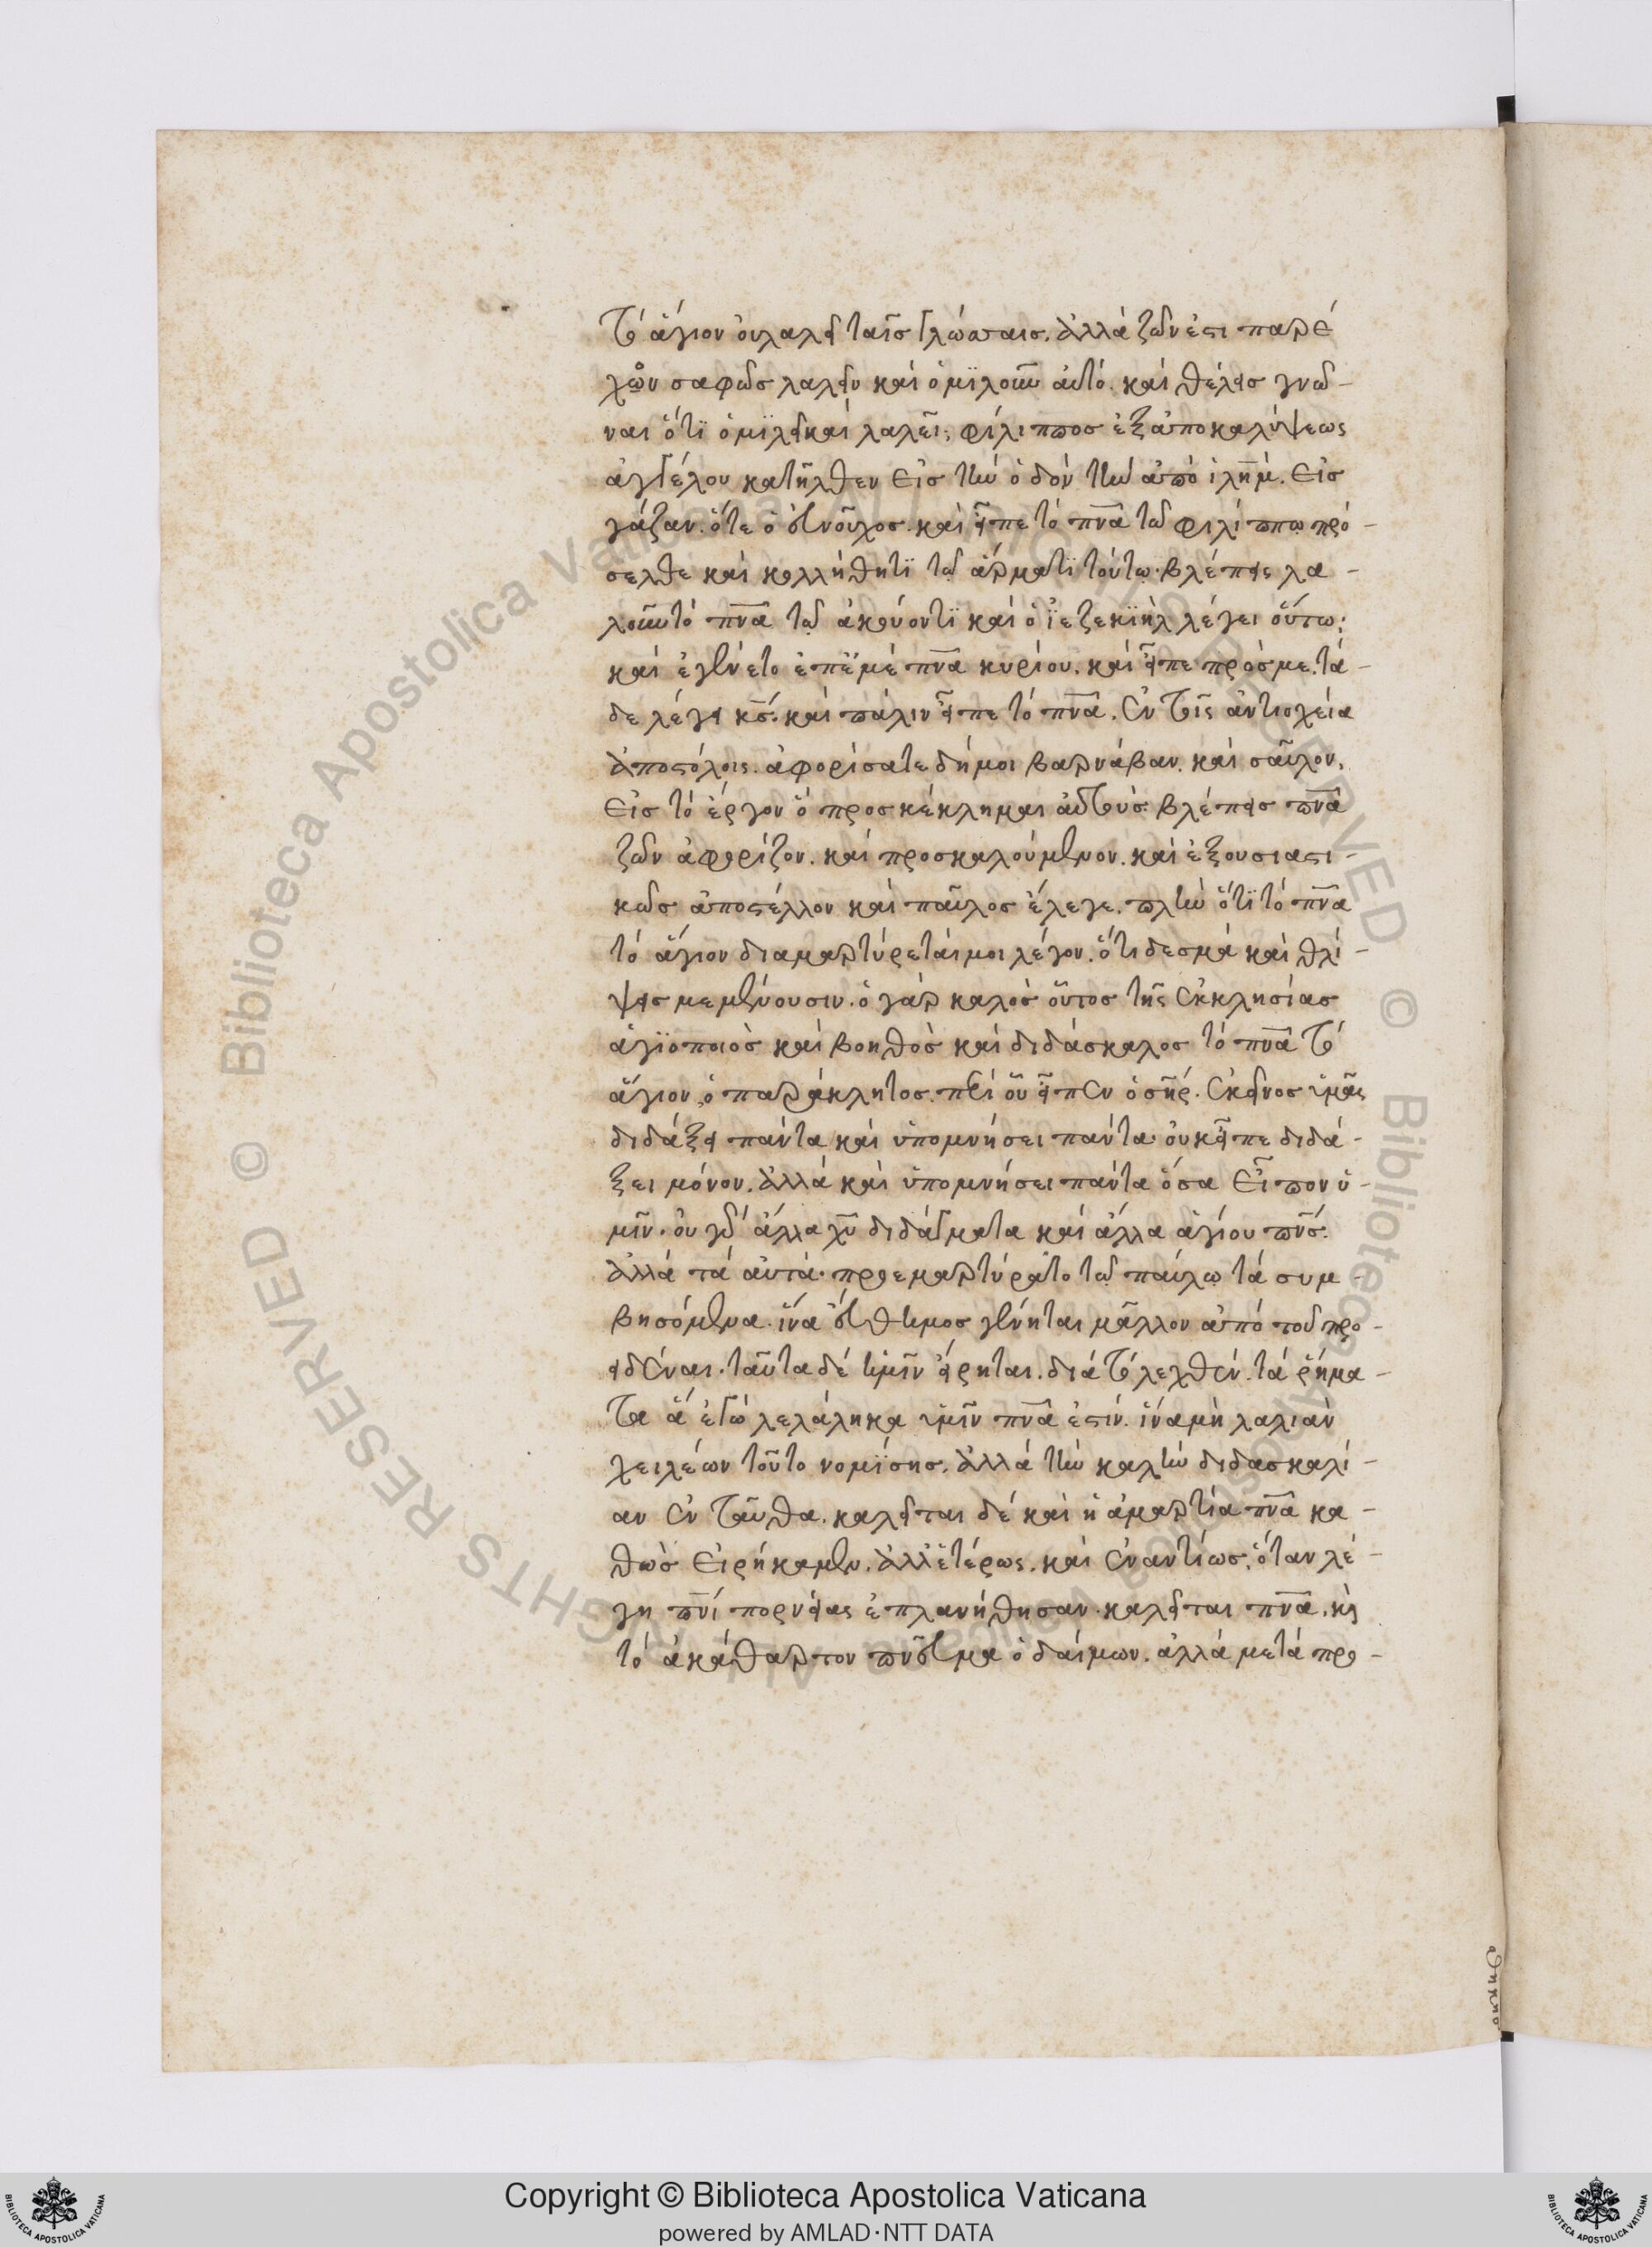 τὸ ἅγιον οὐ λαλεῖ ταῖς γλώσσαις. ἀλλὰ ζῶν ἐστι παρέ
χων σοφῶς λαλεῖν καὶ ὁμιλοῦν αὐτό. καὶ θέλεις γνῶ-
ναι ὅτι ὁμιλεῖ καὶ λαλεῖ; φίλιππος ἐξ ἀποκαλύψεως
ἀγγέλου κατῆλθεν εἰς τὴν ὁδὸν τὴν ἀπὸ ιλημ. εἰς
γάζαν. ὅτε ὁ εὐνοῦχος. καὶ εἶπε τὸ πνα τῷ φιλίππῳ πρό-
σελθε καὶ κολλήθητι τῷ ἅρματι τούτῳ. βλέπεις λα-
λοῦν τὸ πνα τῷ ἀκούοντι καὶ ὁ ἰεζεκιὴλ λέγει οὕτω;
καὶ ἐγένετο ἐπ' ἐμὲ πνα κυρίου. καὶ εἶπε πρός με. τά-
δε λέγει κς. καὶ πάλιν εἶπε τὸ πνα. ἐν τοῖς ἀντιοχείᾳ
ἀποστόλοις. ἀφορίσατε δή μοι βαρνάβαν. καὶ σαῦλον.
εἰς τὸ ἔργον ὃ προσκέκλημαι αὐτούς. βλέπεις πνα
ζῶν ἀφορίζον. καὶ προσκαλούμενον. καὶ ἐξουσιαστι-
κῶς ἀποστέλλον καὶ παῦλος ἔλεγε. πλὴν ὅτι τὸ πνα
τὸ ἅγιον διαμαρτύρεταί μοι λέγον. ὅτι δεσμὰ καὶ θλί-
ψεις με μένουσιν. ὁ γὰρ καλὸς οὗτος τῆς ἐκκλησίας
ἁγιοποιὸς καὶ βοηθὸς καὶ διδάσκαλος τὸ πνα τὸ
ἅγιον, ὁ παράκλητος. περὶ οὗ εἶπεν ὁ σηρ. ἐκεῖνος ὑμᾶς
διδάξει πάντα καὶ ὑπομνήσει πάντα. οὐκ εἶπε διδά-
ξει μόνον. ἀλλὰ καὶ ὑπομνήσει πάντα ὅσα εἶπον ὑ-
μῖν. οὐ γὰρ ἄλλα χυ διδάγματα καὶ ἄλλα ἁγίου πνς.
ἀλλὰ τὰ αὐτά. προεμαρτύρατο τῷ παύλῳ τὰ συμ-
βησόμενα. ἵνα εὔθυμος γένηται μᾶλλον ἀπὸ τοῦ προ-
ειδέναι. ταῦτα δὲ ἡμῖν εἴρηται. διὰ τὸ λεχθέν. τὰ ῥήμα-
τα ἃ ἐγὼ λελάληκα ὑμῖν πνα ἐστίν. ἵνα μὴ λαλιὰν
χειλέων τοῦτο νομίσης. ἀλλὰ τὴν καλὴν διδασκαλί-
αν ἐνταῦθα. καλεῖται δὲ καὶ ἡ ἁμαρτία πνα κα-
θὼς εἰρήκαμεν. ἀλλ' ἑτέρως. καὶ ἐναντίως. ὅταν λέ-
γη πνι πορνείας ἐπλανήθησαν. καλεῖται πνα. κὶ
τὸ ἀκάθαρτον πνεῦμα ὁ δαίμων. ἀλλὰ μετὰ προ-
Copyright © Biblioteca Apostolica Vaticana
powered by AMLAD·NTT DATA